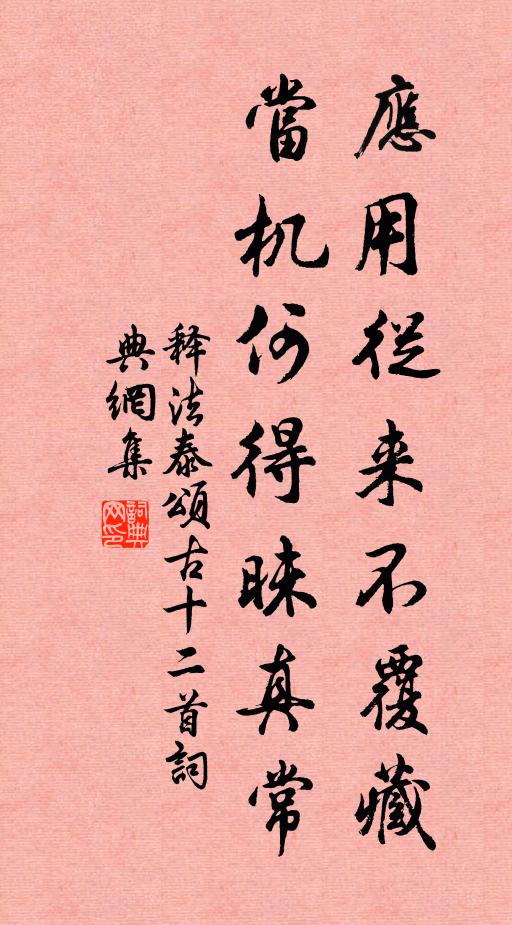 應用從来不覆藏
當机何得昧真常
释法泰頌古十二首詞
典網集
詞典网印